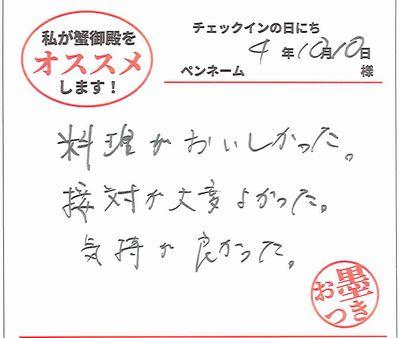 私が蟹御殿を
オススメ
します!
チェックインの日にち
4年10月10日
ペンネーム 様
料理がおいしかった。
接対が大変よかった。
気持が良かった。
お墨
つき